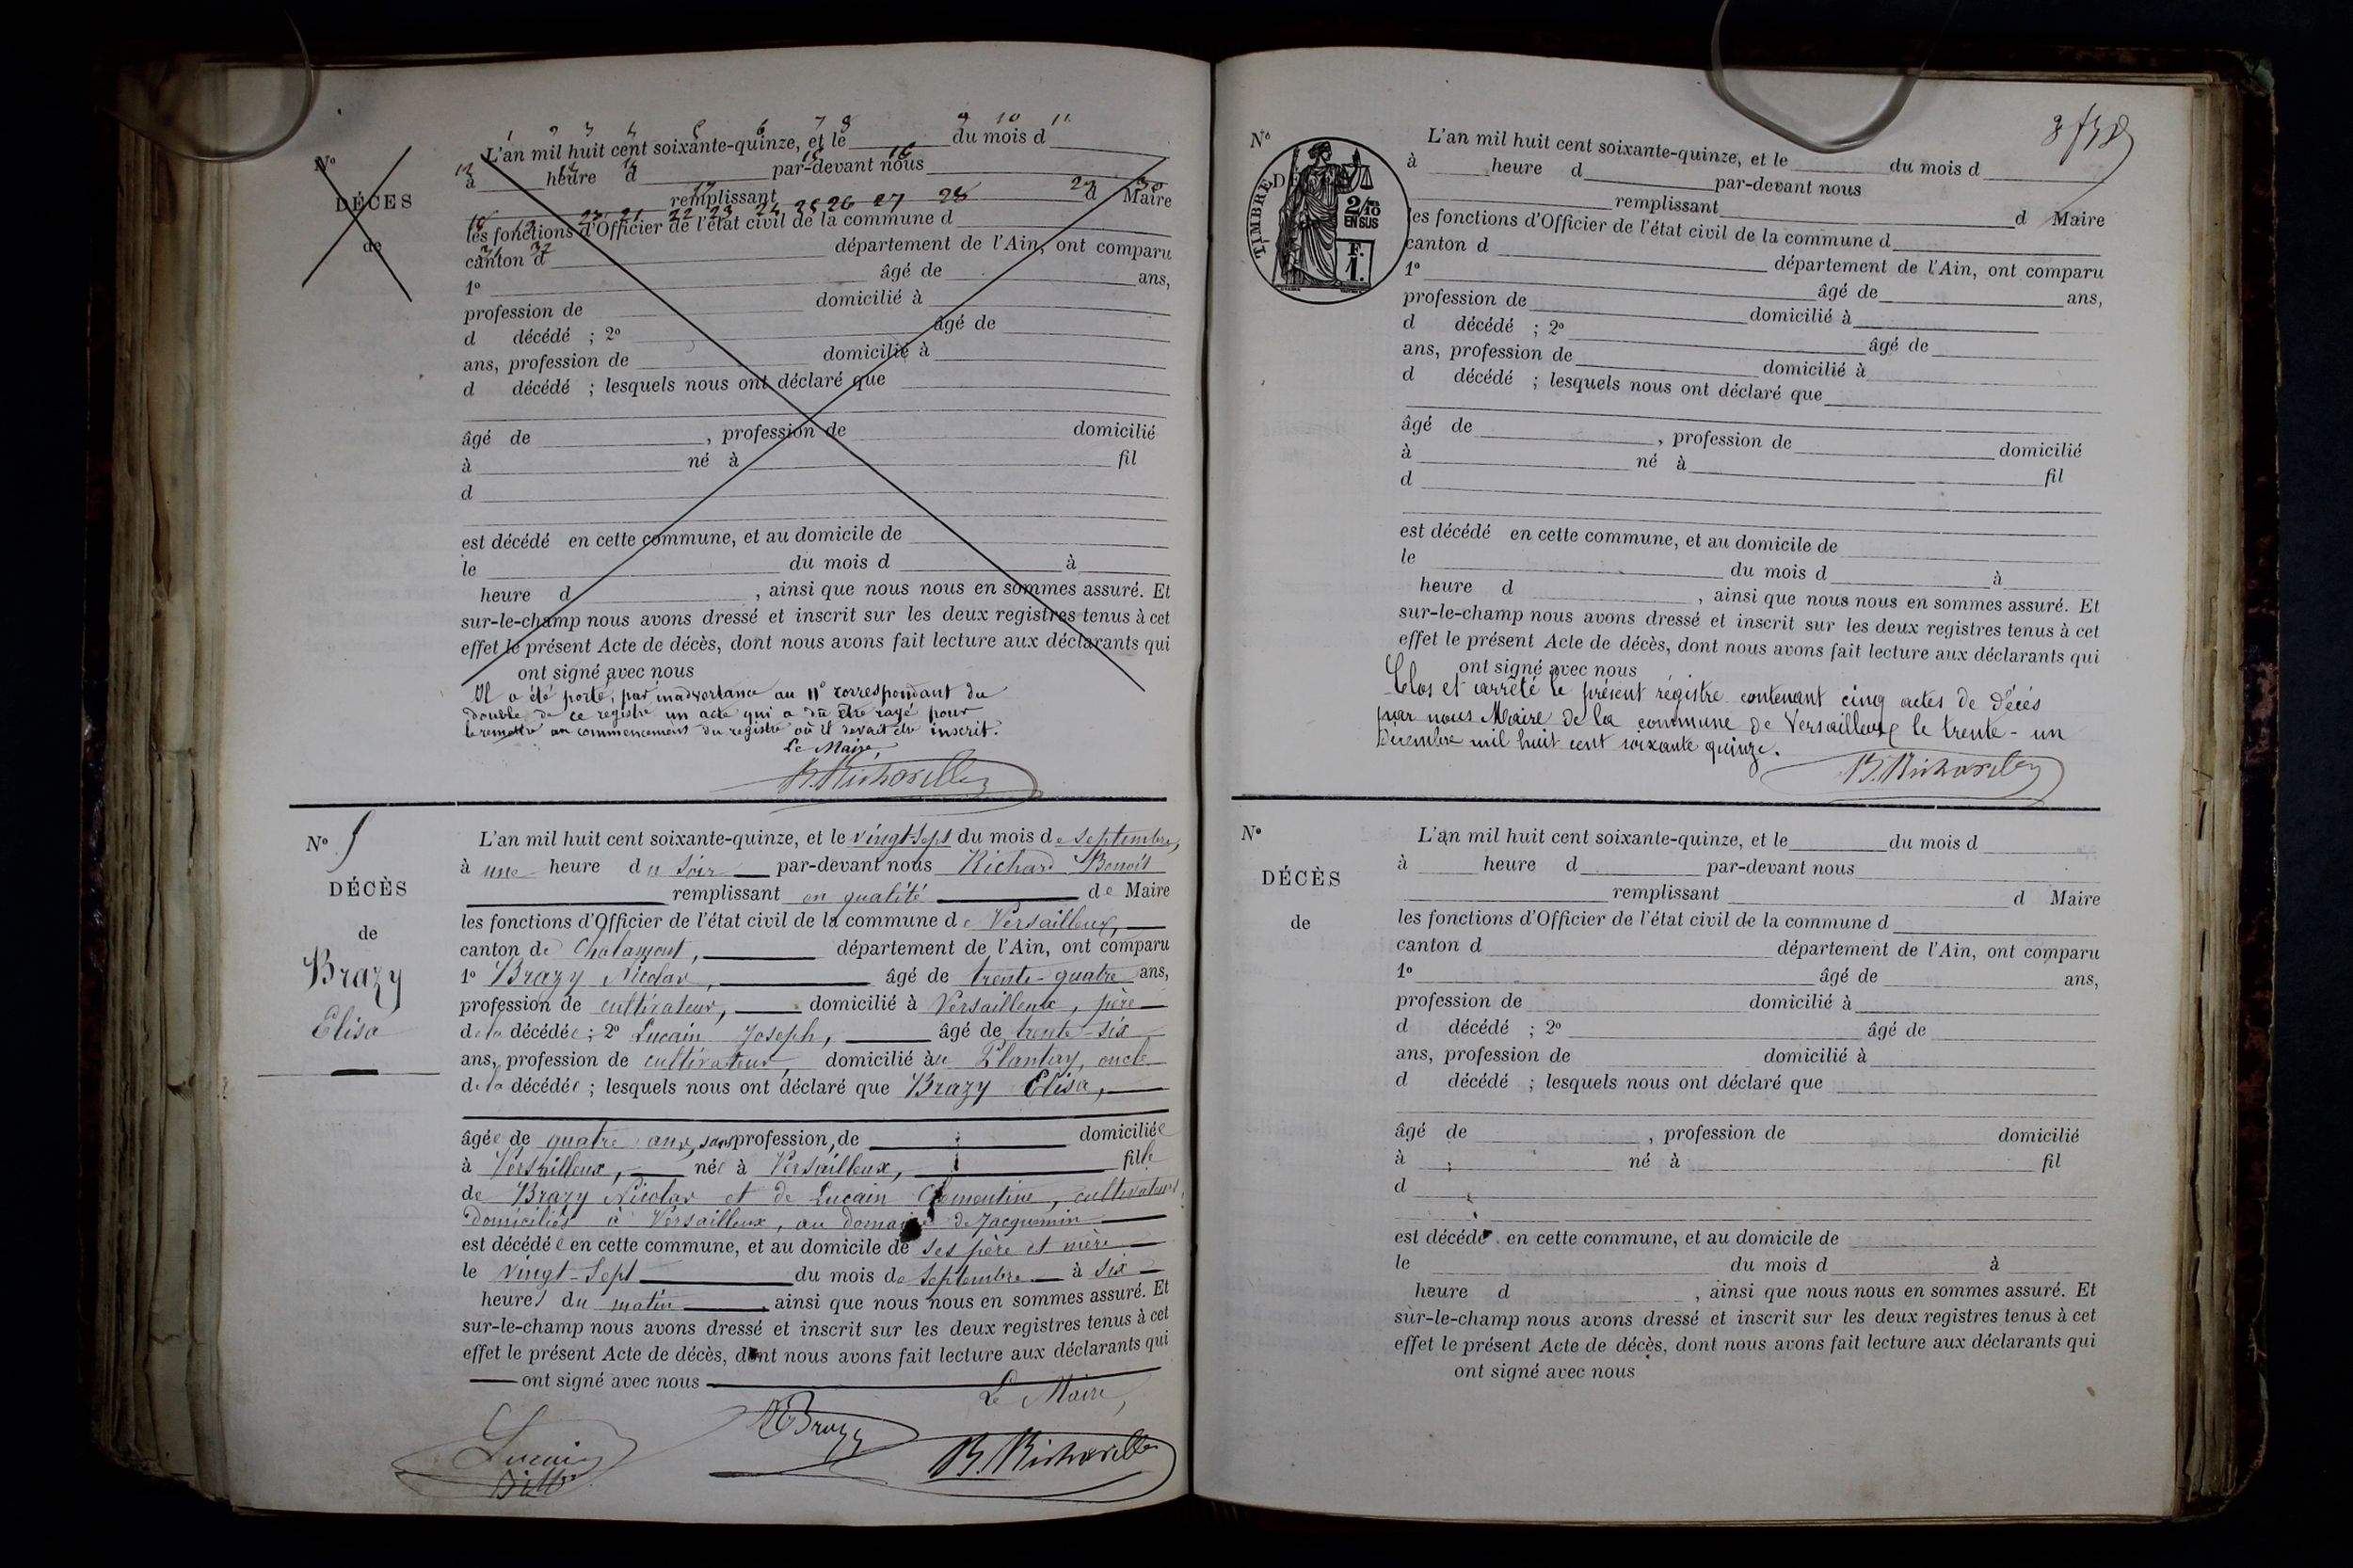 1 2 3 4 5 6 7 8 9 10 11
L'an mil huit cent soixante-quinze, et le du mois d
à heure d par-devant nous
remplissant d Maire
les fonctions d'Officier de l'état civil de la commune d
canton d département de l'Ain, ont comparu
1º âgé de ans,
profession de domicilié à
d décédé ; 2º âgé de
ans, profession de domicilié à
d décédé ; lesquels nous ont déclaré que
âgé de , profession de domicilié
à né à fil
d
est décédé en cette commune, et au domicile de
le du mois d à
heure d , ainsi que nous nous en sommes assuré. Et
sur-le-champ nous avons dressé et inscrit sur les deux registres tenus à cet
effet le présent Acte de décès, dont nous avons fait lecture aux déclarants qui
ont signé avec nous
Nº
DÉCES
de
Il a été porté, par inadvertance au nº correspondant du
double de ce registre un acte qui a dû être rayé pour
le remettre au commencement du registre où il devait être inscrit.
Le Maire,
Nº 5
DÉCÈS
de
Brazy
Elisa
L'an mil huit cent soixante-quinze, et le vingt-sept du mois de septembre,
à une heure du soir par-devant nous Richard Benoît
remplissant en qualité de Maire
les fonctions d'Officier de l'état civil de la commune de Versailleux,
canton de Chalamont, département de l'Ain, ont comparu
1º Brazy Nicolas, âgé de trente-quatre ans,
profession de cultivateur, domicilié à Versailleux, père
de la décédée ; 2º Lucain Joseph, âgé de trente-six
ans, profession de cultivateur, domicilié au Plantay, oncle
de la décédée ; lesquels nous ont déclaré que Brazy Elisa,
âgée de quatre ans, sans profession, de domiciliée
à Versailleux, née à Versailleux, fille
de Brazy Nicolas et de Lucain Clémentine, cultivateurs,
domiciliés à Versailleux, au domaine de Jacquemin
est décédée en cette commune, et au domicile de ses père et mère
le vingt-sept du mois de septembre à six
heures du matin , ainsi que nous nous en sommes assuré. Et
sur-le-champ nous avons dressé et inscrit sur les deux registres tenus à cet
effet le présent Acte de décès, dont nous avons fait lecture aux déclarants qui
ont signé avec nous
Le Maire,
Lucain Brazy
Nº
TIMBRE
2/10 EN SUS
F. 1.
L'an mil huit cent soixante-quinze, et le du mois d
à heure d par-devant nous
remplissant d Maire
les fonctions d'Officier de l'état civil de la commune d
canton d département de l'Ain, ont comparu
1º âgé de ans,
profession de domicilié à
d décédé ; 2º âgé de
ans, profession de domicilié à
d décédé ; lesquels nous ont déclaré que
âgé de , profession de domicilié
à né à fil
d
est décédé en cette commune, et au domicile de
le du mois d à
heure d , ainsi que nous nous en sommes assuré. Et
sur-le-champ nous avons dressé et inscrit sur les deux registres tenus à cet
effet le présent Acte de décès, dont nous avons fait lecture aux déclarants qui
ont signé avec nous
Clos et arrêté le présent régistre contenant cinq actes de décés
par nous Maire de la commune de Versailleux le trente-un
Décembre mil huit cent soixante quinze.
Nº
DÉCÈS
de
L'an mil huit cent soixante-quinze, et le du mois d
à heure d par-devant nous
remplissant d Maire
les fonctions d'Officier de l'état civil de la commune d
canton d département de l'Ain, ont comparu
1º âgé de ans,
profession de domicilié à
d décédé ; 2º âgé de
ans, profession de domicilié à
d décédé ; lesquels nous ont déclaré que
âgé de , profession de domicilié
à né à fil
d
est décédé en cette commune, et au domicile de
le du mois d à
heure d , ainsi que nous nous en sommes assuré. Et
sur-le-champ nous avons dressé et inscrit sur les deux registres tenus à cet
effet le présent Acte de décès, dont nous avons fait lecture aux déclarants qui
ont signé avec nous